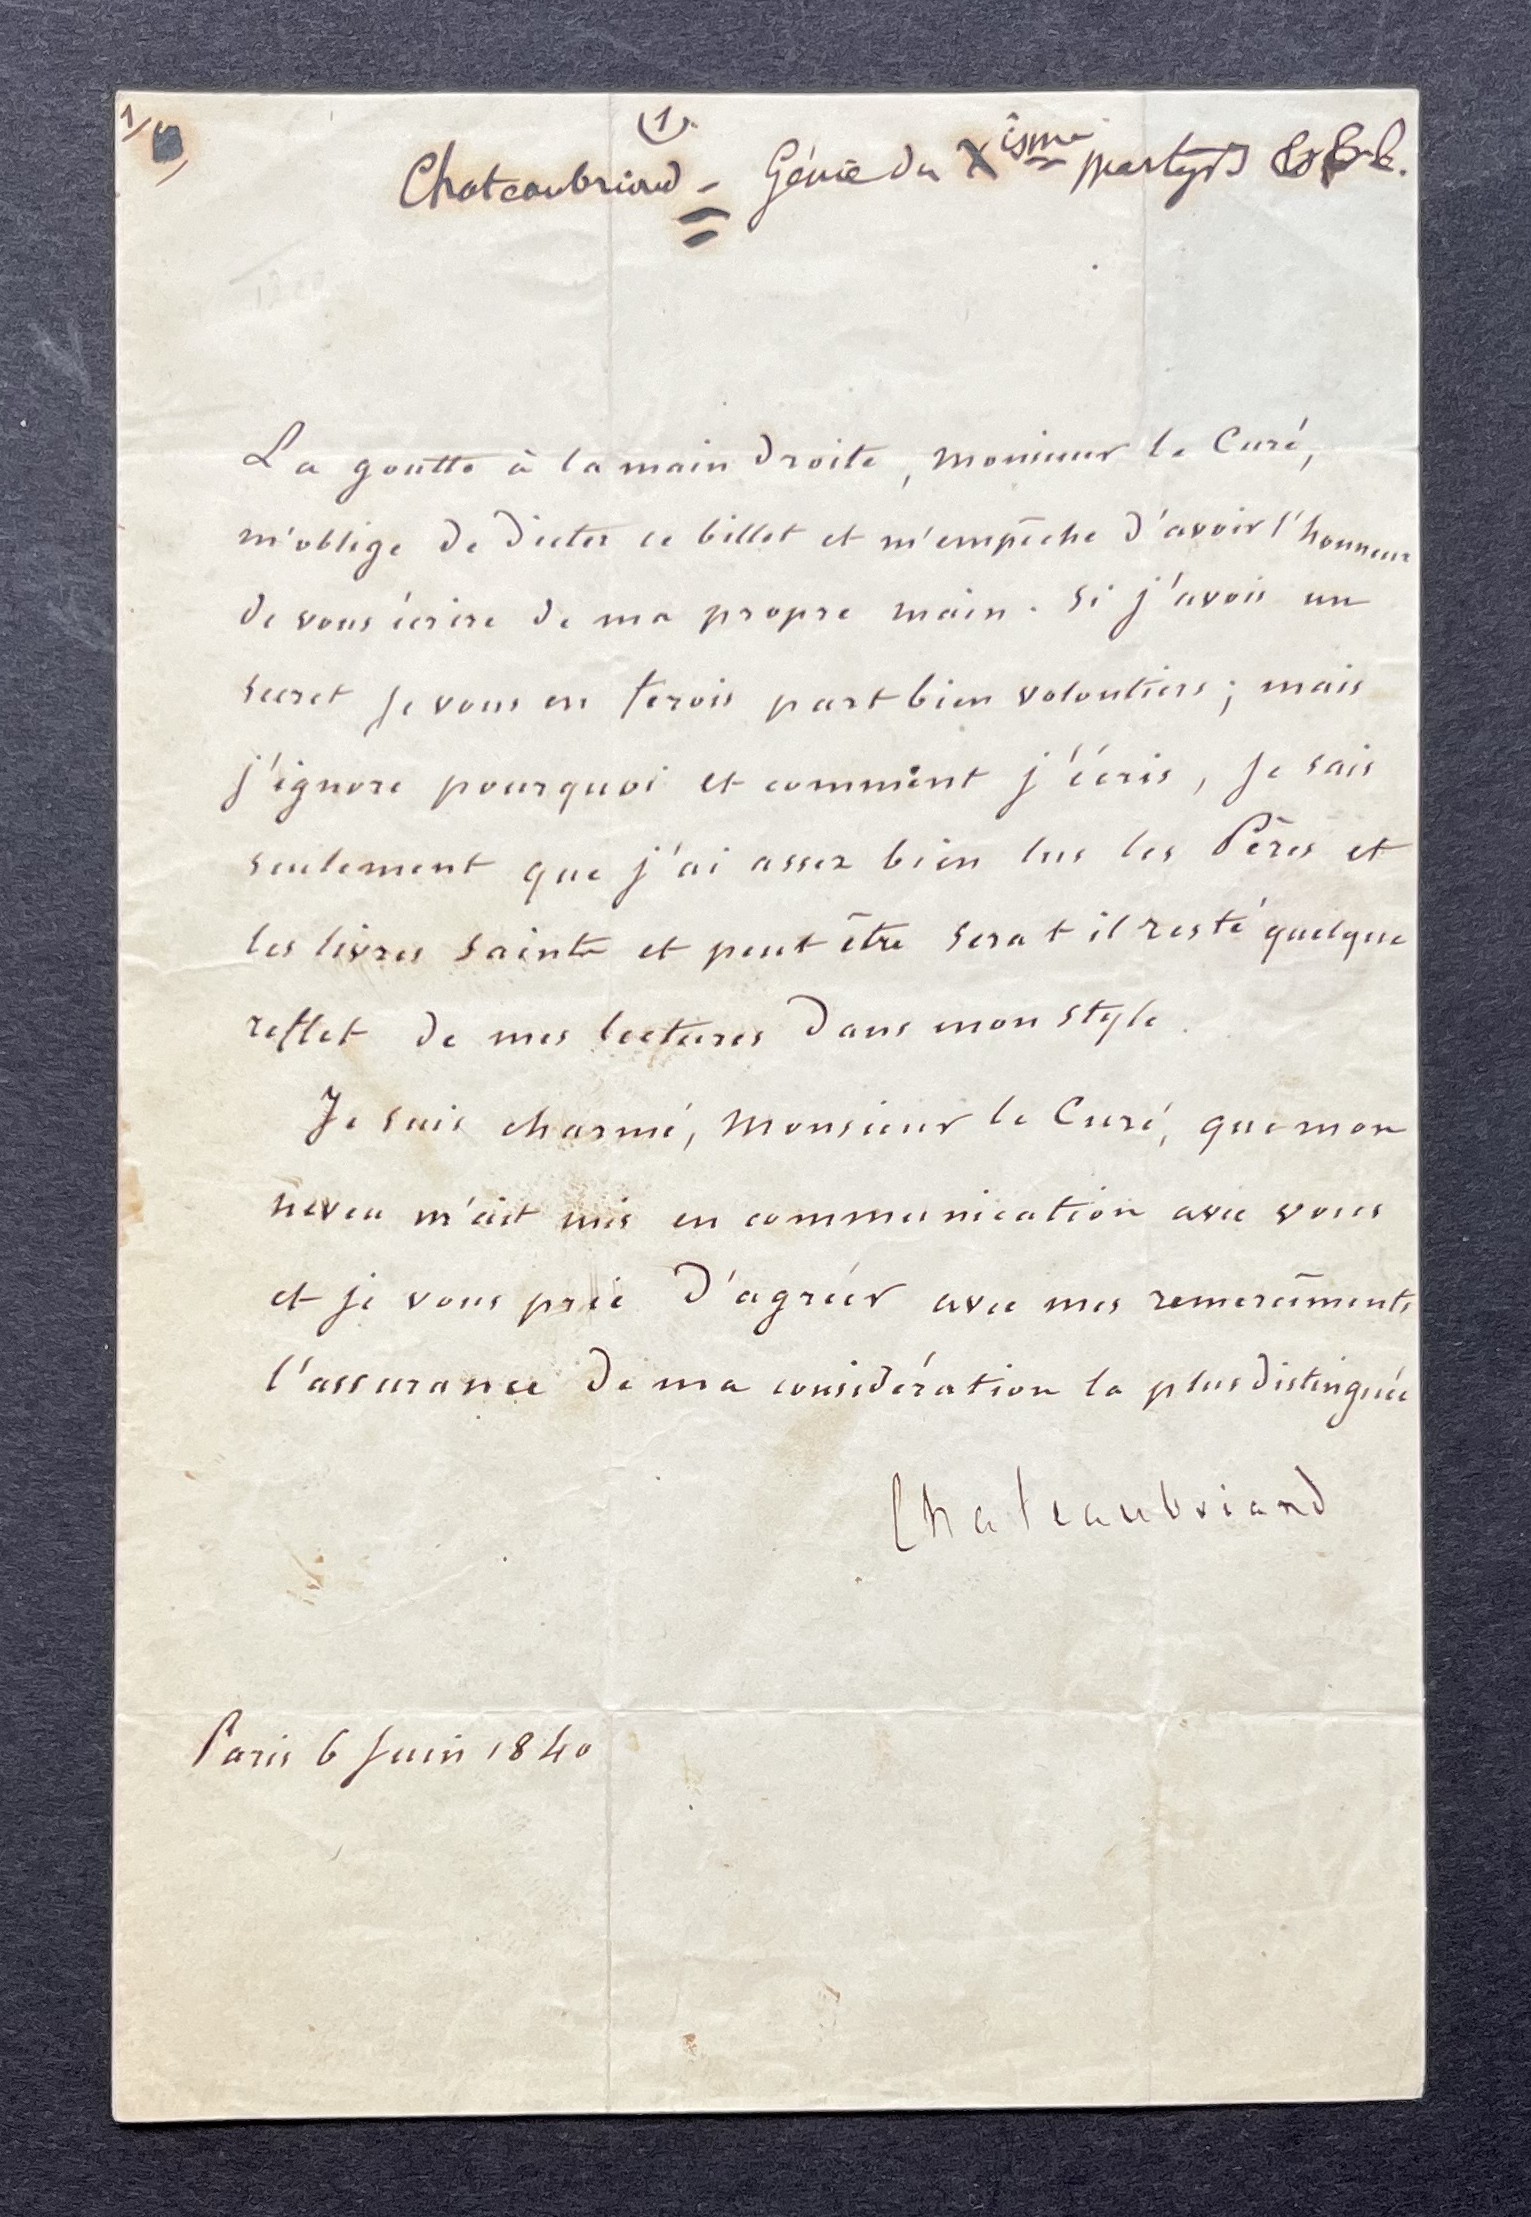 1/
(1).
Chateaubriand = Génie du Xisme martyrs &
La goutte à la main droite, Monsieur le Curé,
m'oblige de dicter ce billet et m'empêche d'avoir l'honneur
de vous écrire de ma propre main. Si j'avois un
secret je vous en ferois part bien volontiers; mais
j'ignore pourquoi et comment j'écris, je sais
seulement que j'ai assez bien lus les Pères et
les livres saints et peut être sera t il resté quelque
reflet de mes lectures dans mon style.
Je suis charmé, Monsieur le Curé, que mon
neveu m'ait mis en communication avec vous
et je vous prie d'agréer avec mes remercîments
l'assurance de ma considération la plus distinguée
Chateaubriand
Paris 6 Juin 1840